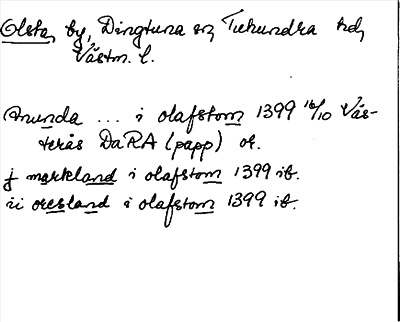 Olsta, by, Dingtuna sn, Tuhundra hd,
Västm. l.
Anunda ... i olafstom 1399 16/10 Väs-
terås DaRA (papp) or.
j markland i olafstom 1399 ib.
ii oresland i olafstom 1399 ib.